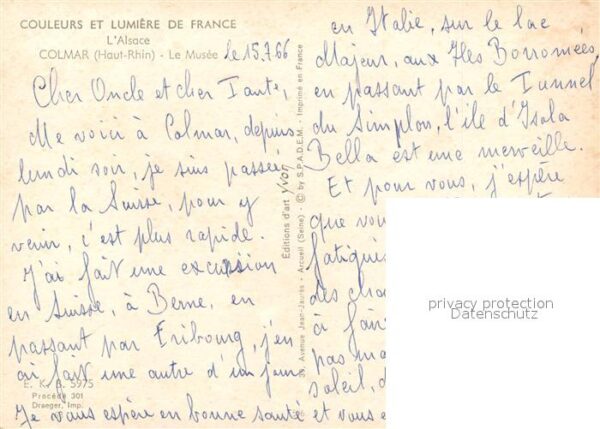 COULEURS ET LUMIÈRE DE FRANCE
L'Alsace
COLMAR (Haut-Rhin) - Le Musée
le 15.7.66
Cher Oncle et cher Tante,
Me voici à Colmar, depuis
lundi soir, je suis passée
par la Suisse, pour y
venir, c'est plus rapide.
J'ai fait une excursion
en Suisse, à Berne, en
passant par Fribourg, j'en
ai fait une autre d'un jour
E. K. B. 5975
Procédé 301
Draeger, Imp.
Éditions d'art Yvon - © by S.P.A.D.E.M. - Imprimé en France
Avenue Jean-Jaurès - Arcueil (Seine)
en Italie, sur le lac
Majeur, aux Iles Borromées,
en passant par le Tunnel
du Simplon, l'ile d'Isola
Bella est une merveille.
Et pour vous, j'espère
que vou
fatigués
des cha
à fair
pas ma
soleil, d
Je vous espère en bonne santé et vous e
privacy protection
Datenschutz